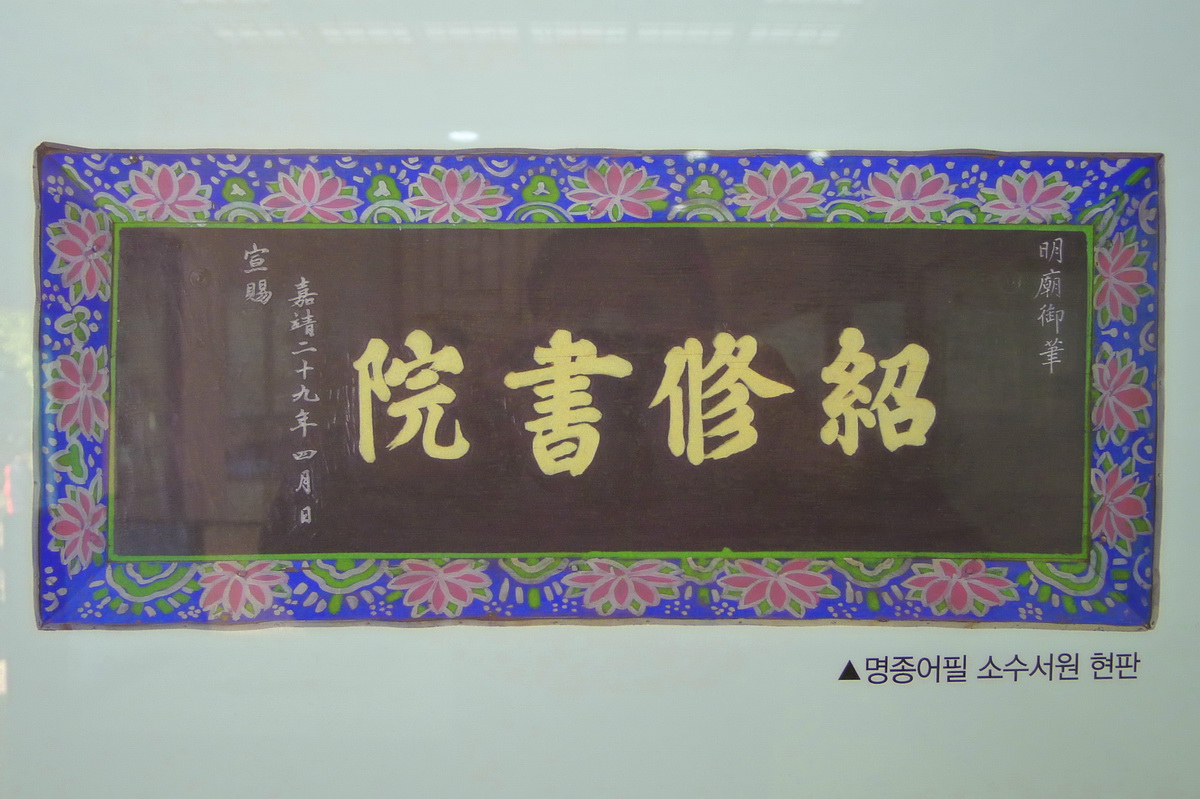 明廟御筆
紹修書院
嘉靖二十九年 四月 日
宣賜
▲명종어필 소수서원 현판